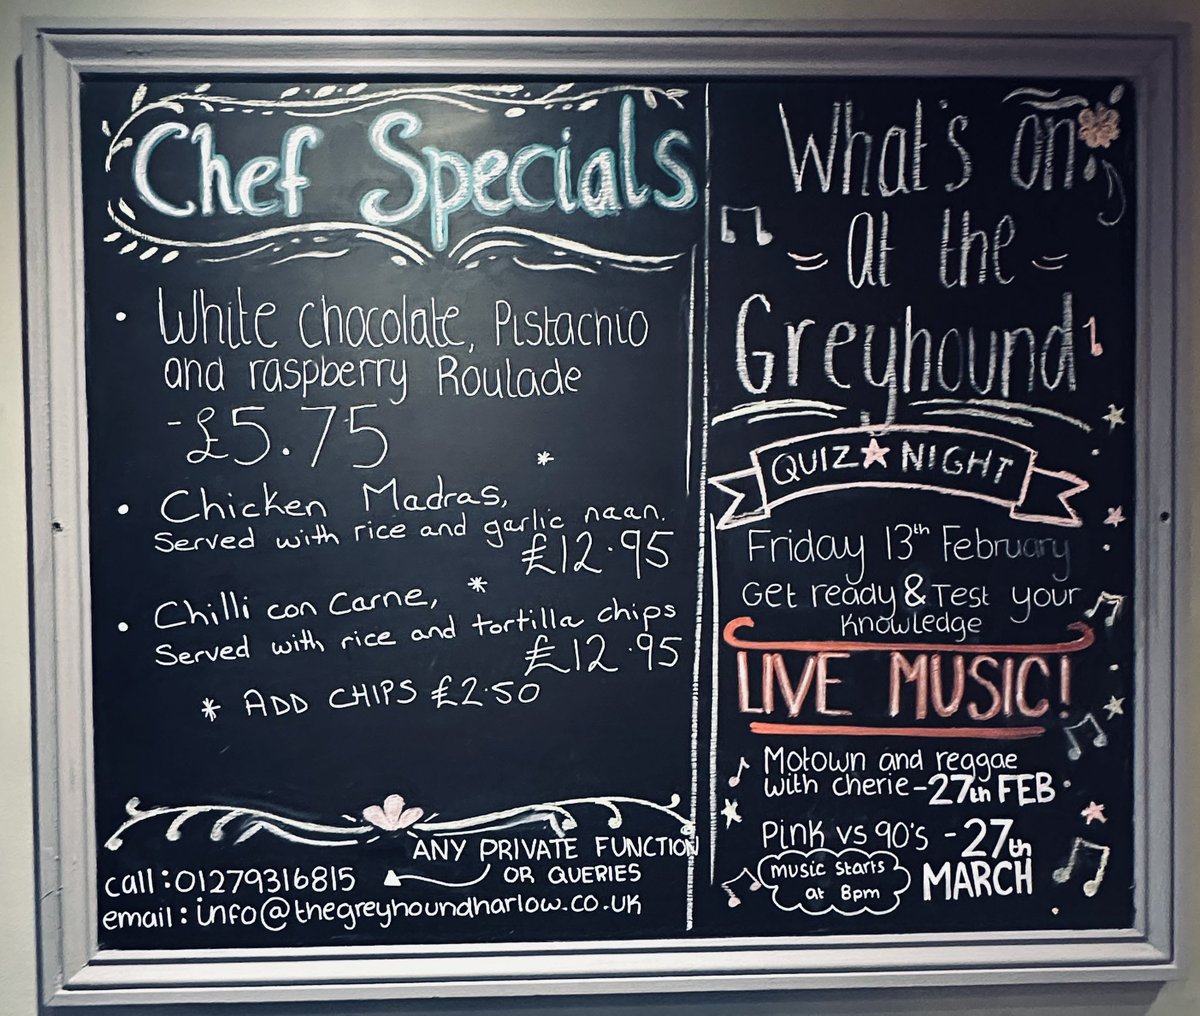 Chef Specials
• White chocolate, Pistachio
and raspberry Roulade
- £5.75
*
• Chicken Madras,
Served with rice and garlic naan.
£12.95
*
• Chilli con Carne,
Served with rice and tortilla chips
£12.95
* ADD CHIPS £2.50
ANY PRIVATE FUNCTION
OR QUERIES
call: 01279316815
email: info@thegreyhoundharlow.co.uk
What's on
at the
Greyhound
QUIZ NIGHT
Friday 13th February
Get ready & Test your
Knowledge
LIVE MUSIC!
Motown and reggae
with cherie - 27th FEB
Pink vs 90's - 27th
MARCH
music starts
at 8pm